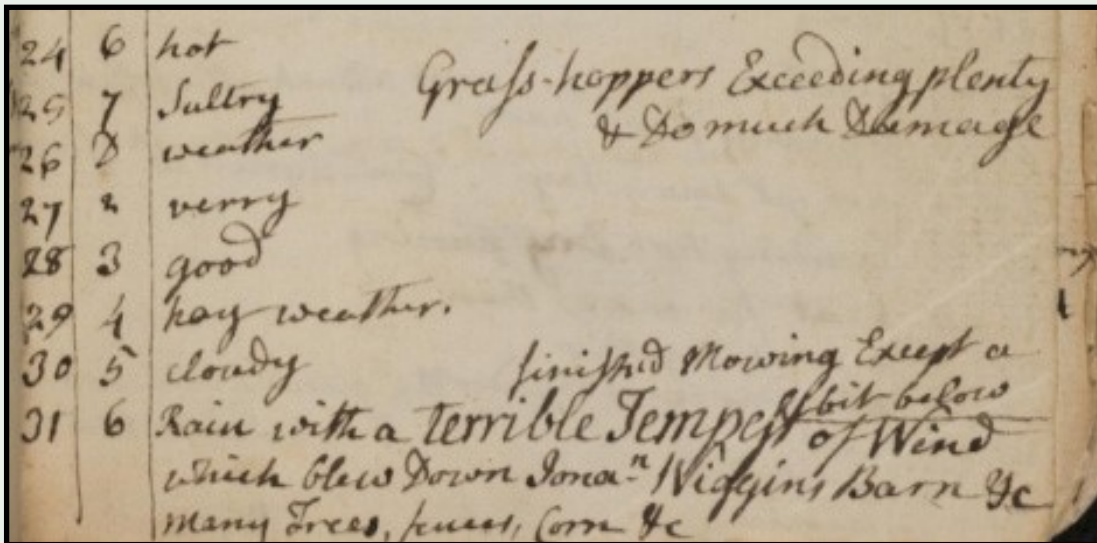 24 6 hot
Grass-hoppers Exceeding plenty
25 7 Sultry
& Do much Damage
26 D weather
27 2 verry
28 3 good
29 4 hay weather.
30 5 cloudy finished Mowing Except a
bit below
31 6 Rain with a terrible Tempest of Wind
which blew Down Jonaⁿ Wiggins Barn &c
many Trees, fences, Corn &c